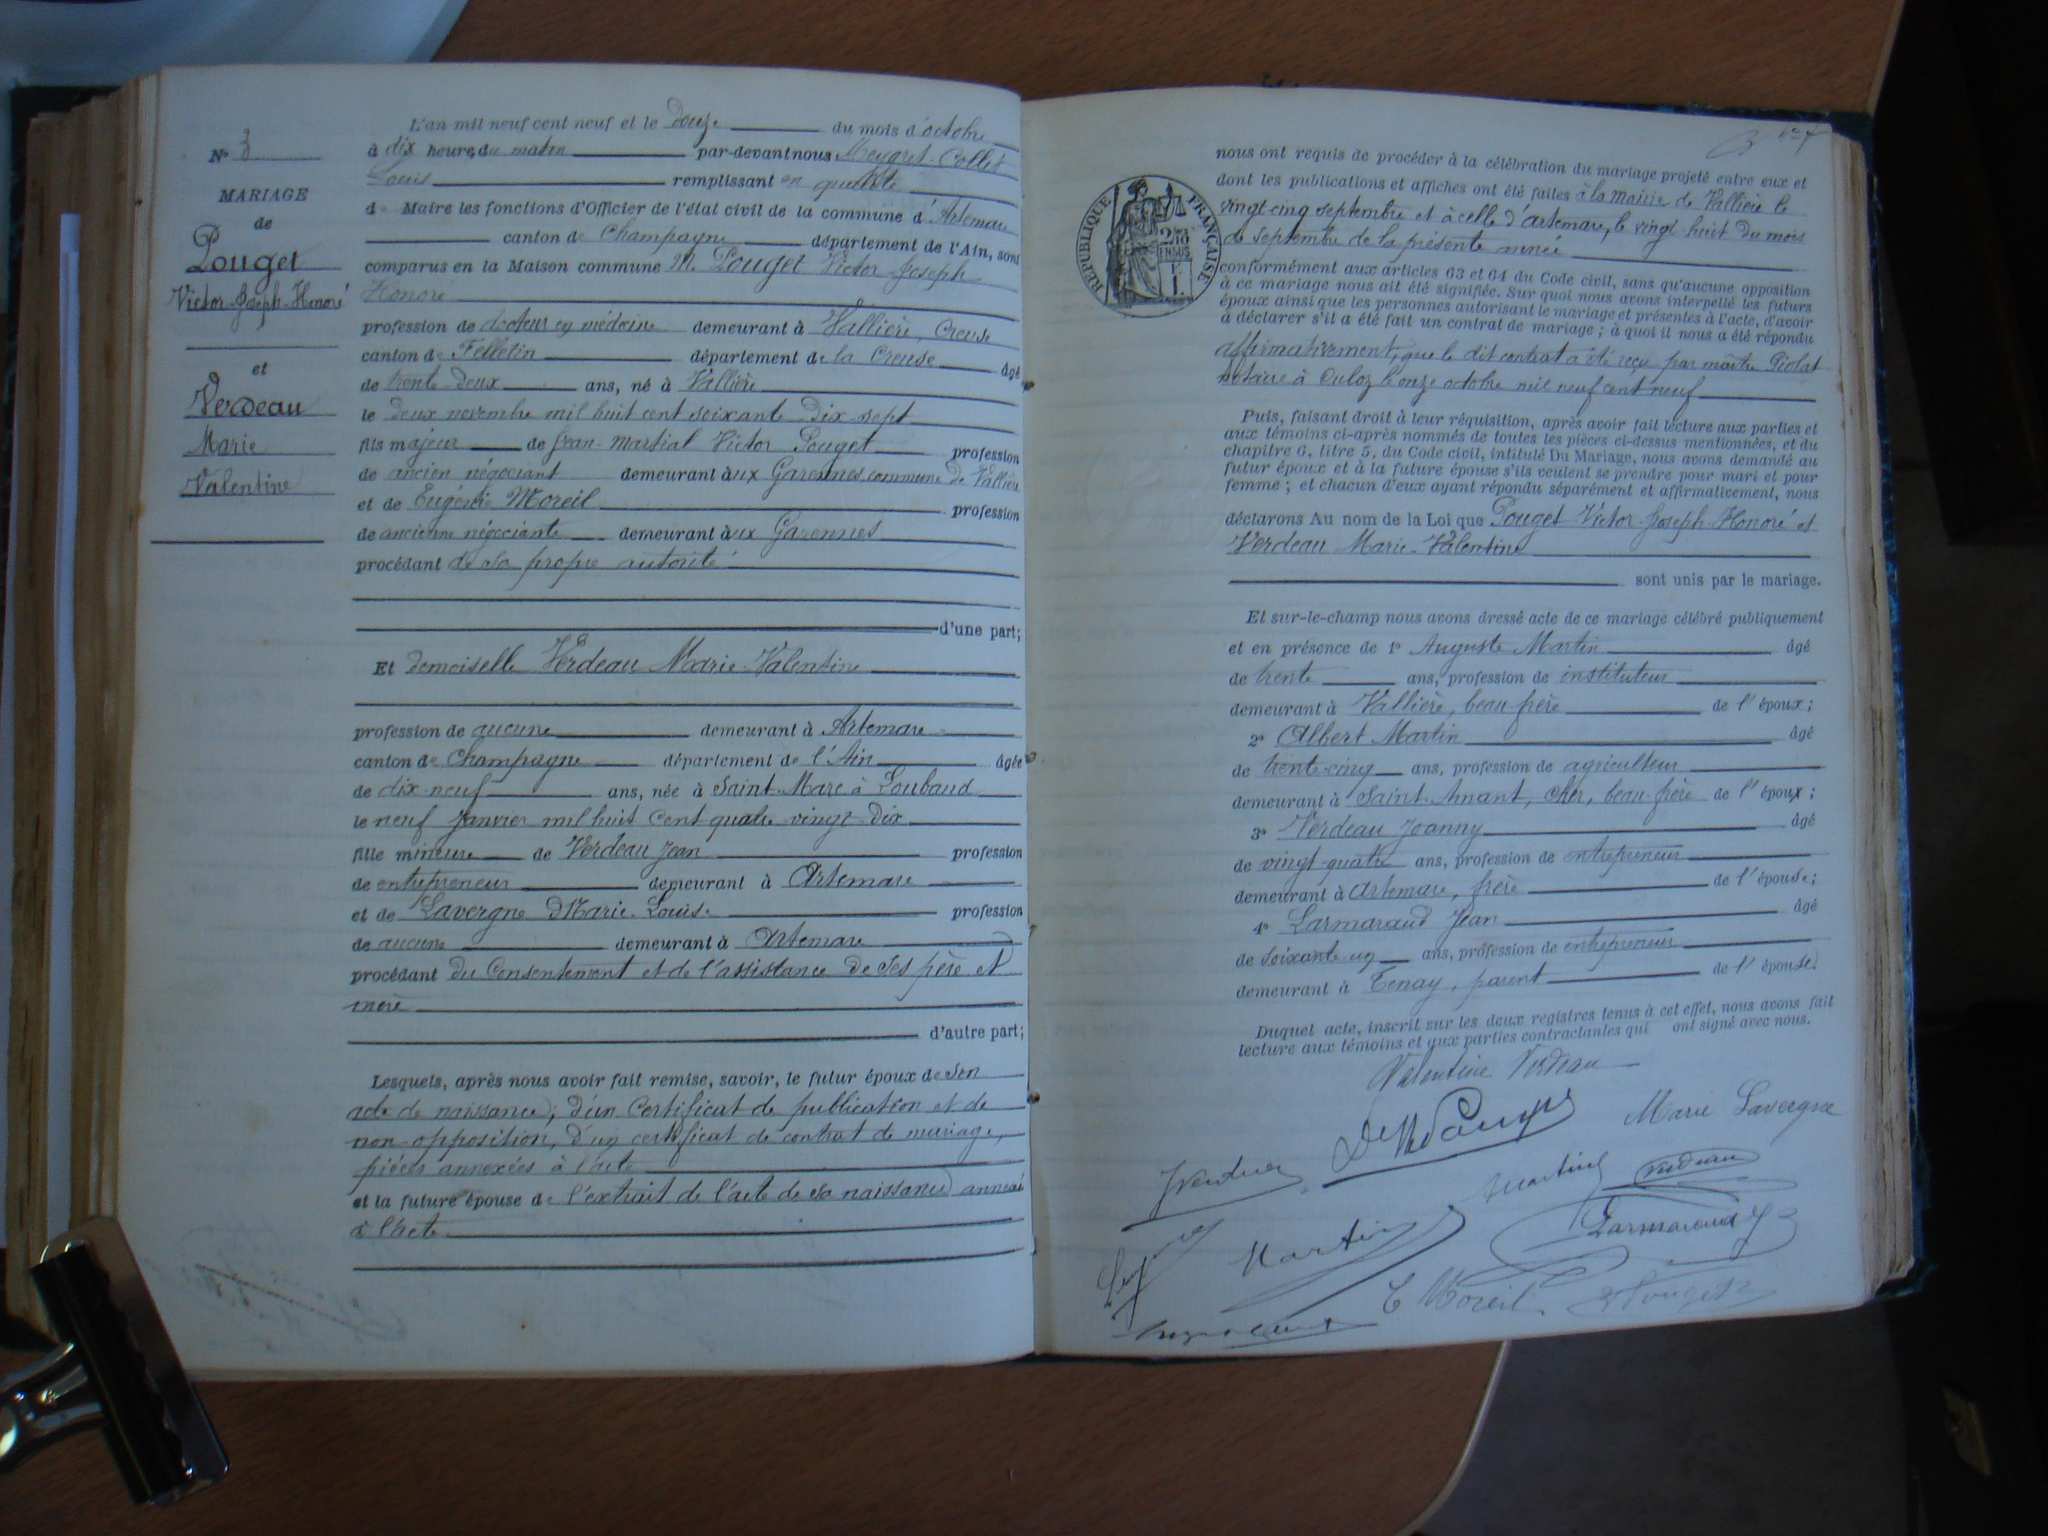 N° 3
MARIAGE
de
Pouget
Victor-Joseph-Honoré
et
Verdeau
Marie
Valentine
L'an mil neuf cent neuf et le Douze du mois d'octobre
à dix heures du matin par-devant nous Meygret-Collet
Louis remplissant en qualité
de Maire les fonctions d'Officier de l'état civil de la commune d'Artemare
canton de Champagne département de l'Ain, sont
comparus en la Maison commune M. Pouget Victor Joseph
Honoré
profession de docteur en médecine demeurant à Vallière, Creuse
canton de Felletin département de la Creuse âgé
de trente-deux ans, né à Vallière
le deux novembre mil huit cent soixante dix sept
fils majeur de Jean-Martial Victor Pouget profession
de ancien négociant demeurant aux Garennes, commune de Vallière
et de Eugénie Moreil profession
de ancienne négociante demeurant aux Garennes
procédant de sa propre autorité
d'une part;
Et demoiselle Verdeau Marie-Valentine
profession de aucune demeurant à Artemare
canton de Champagne département de l'Ain âgée
de dix-neuf ans, née à Saint-Marc à Loubaud
le neuf janvier mil huit cent quatre-vingt-dix
fille mineure de Verdeau Jean profession
de entrepreneur demeurant à Artemare
et de Lavergne Marie-Louise profession
de aucune demeurant à Artemare
procédant du consentement et de l'assistance de ses père et
mère
d'autre part;
Lesquels, après nous avoir fait remise, savoir, le futur époux de son
acte de naissance, d'un certificat de publication et de
non-opposition, d'un certificat de contrat de mariage,
pièces annexées à l'acte
et la future épouse de l'extrait de l'acte de sa naissance annexé
à l'acte
nous ont requis de procéder à la célébration du mariage projeté entre eux et
dont les publications et affiches ont été faites à la mairie de Vallière le
vingt-cinq septembre et à celle d'Artemare, le vingt-huit du mois
de septembre de la présente année
conformément aux articles 63 et 64 du Code civil, sans qu'aucune opposition
à ce mariage nous ait été signifiée. Sur quoi nous avons interpellé les futurs
époux ainsi que les personnes autorisant le mariage et présentes à l'acte, d'avoir
à déclarer s'il a été fait un contrat de mariage ; à quoi il nous a été répondu
affirmativement, que le dit contrat a été reçu par maître Piolat
notaire à Culoz le onze octobre mil neuf cent neuf
Puis, faisant droit à leur réquisition, après avoir fait lecture aux parties et
aux témoins ci-après nommés de toutes les pièces ci-dessus mentionnées, et du
chapitre 6, titre 5, du Code civil, intitulé Du Mariage, nous avons demandé au
futur époux et à la future épouse s'ils veulent se prendre pour mari et pour
femme ; et chacun d'eux ayant répondu séparément et affirmativement, nous
déclarons Au nom de la Loi que Pouget Victor-Joseph-Honoré et
Verdeau Marie-Valentine
sont unis par le mariage.
Et sur-le-champ nous avons dressé acte de ce mariage célébré publiquement
et en présence de 1° Auguste Martin âgé
de trente ans, profession de instituteur
demeurant à Vallière, beau-frère de l'époux ;
2° Albert Martin âgé
de trente-cinq ans, profession de agriculteur
demeurant à Saint-Amant, Cher, beau-frère de l'époux ;
3° Verdeau Joanny âgé
de vingt-quatre ans, profession de entrepreneur
demeurant à Artemare, frère de l'épouse ;
4° Larmaraud Jean âgé
de soixante un ans, profession de entrepreneur
demeurant à Tenay, parent de l'épouse.
Duquel acte, inscrit sur les deux registres tenus à cet effet, nous avons fait
lecture aux témoins et aux parties contractantes qui ont signé avec nous.
RÉPUBLIQUE FRANÇAISE
Valentine Verdeau
Marie Lavergne
Martin
Verdeau
Larmaraud
Martin
E Moreil
Pouget